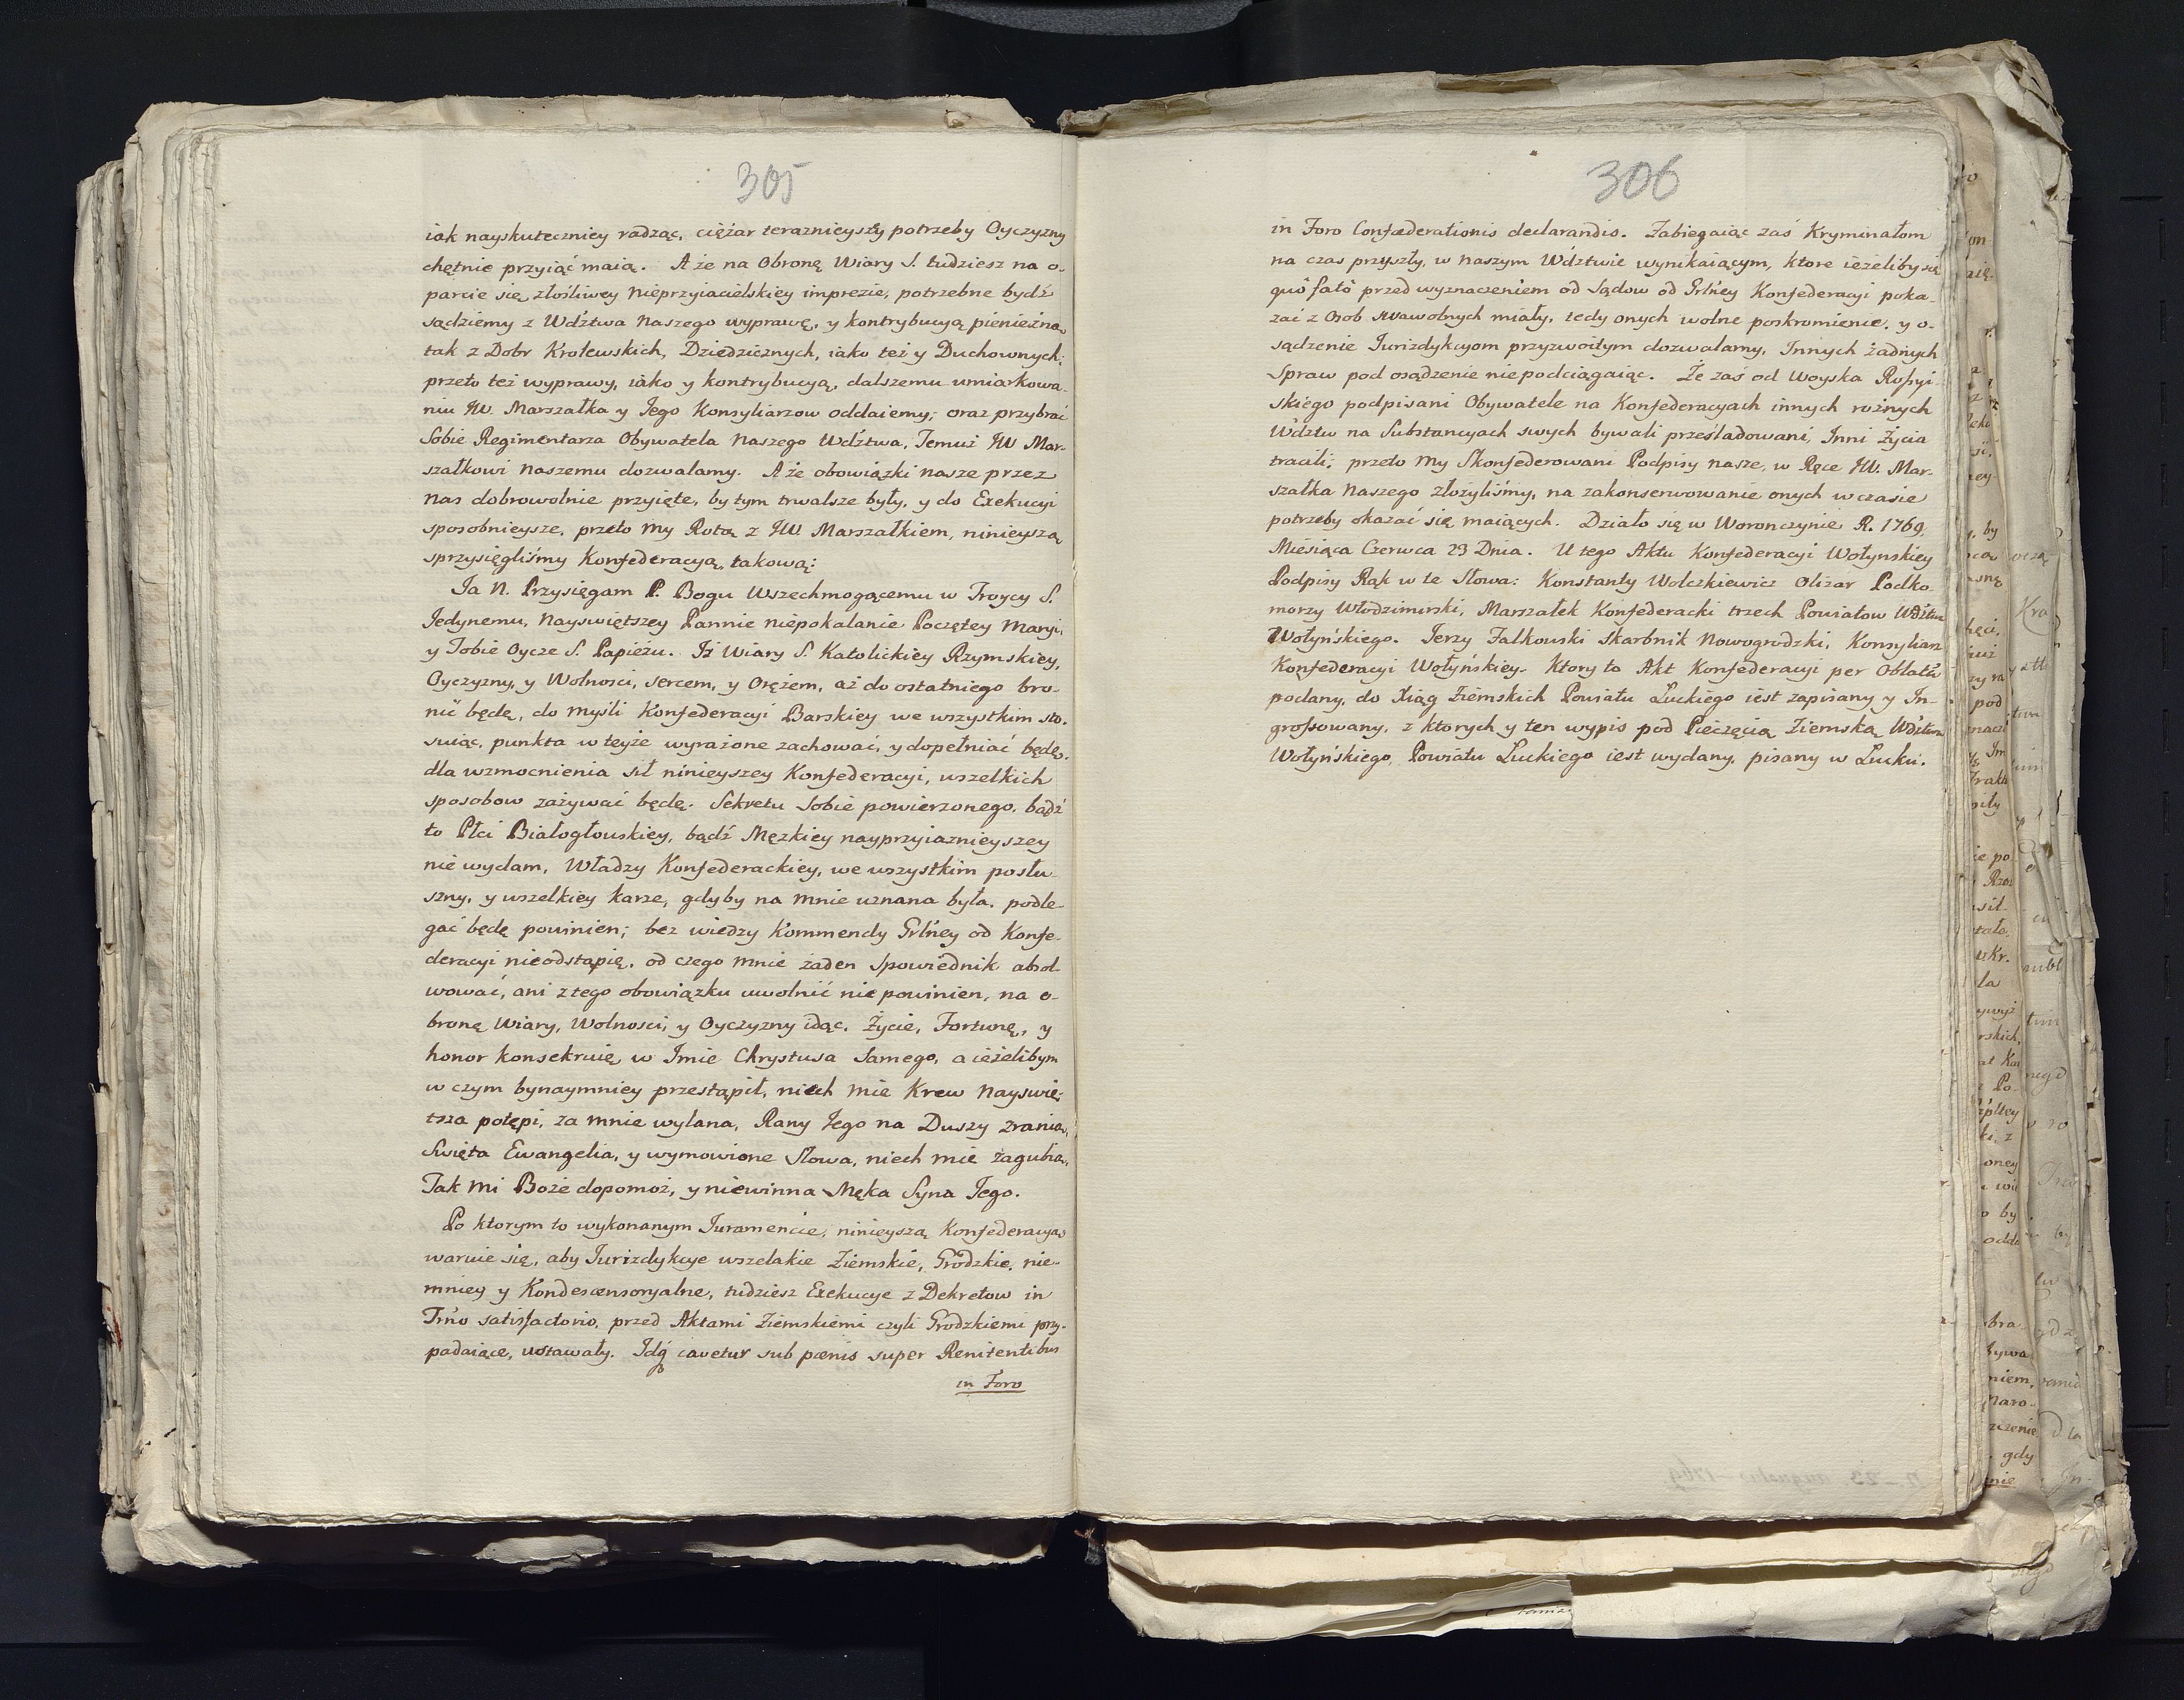 305
iak nayskuteczniey radząc, ciężar teraznieyszy potrzeby Oyczyzny
chętnie przyiąć maią. A że na Obronę Wiary S. tudziesz na o-
parcie się złośliwey Nieprzyiacielskiey imprezie, potrzebne bydź
sądziemy z Wdztwa Naszego wyprawę, y kontrybucyą pienieżną
tak z Dobr Krolewskich, Dziedzicznych, iako też y Duchownych;
przeto też wyprawy, iáko y kontrybucyą, dalszemu umiarkowa-
niu JW. Marszałka y Jego Konsyliarzow oddaiemy; oraz przybrać
Sobie Regimentarza Obywatela Naszego Wdztwa, Temuż JW Mar-
szałkowi Naszemu dozwalamy. A że obowiązki nasze przez
nas dobrowolnie przyięte, by tym trwalsze były, y do Exekucyi
sposobnieysze, przeto My Rotą z JW Marszałkiem, ninieyszą
sprzysięgliśmy Konfederacyą, takową:
Ja N. Przysięgam P. Bogu Wszechmogącemu w Troycy S.
Jedynemu, Nayswiętszey Pannie niepokalanie Poczętey Maryi,
y Tobie Oycze S. Papieżu. Iż Wiary S. Katolickiey Rzymskiey,
Oyczyzny, y Wolnosci, sercem, y Orężem, aż do ostatniego bro-
nić będę, do myśli Konfederacyi Barskiey we wszystkim sto-
suiąc, punkta w teyże wyrażone zachować, y dopełniać będę,
dla wzmocnienia sił ninieyszey Konfederacyi, wszelkich
sposobow zażywać będę. Sekretu Sobie powierzonego, bądź
to Płci Białogłouskiey, bądź Męzkiey nayprzyiaznieyszey
nie wydam, Władzy Konfederackiey, we wszystkim posłu-
szny, y wszelkiey karze, gdyby na mnie uznana była, podle-
gać będę powinien; bez wiedzy Kommendy Grlney od Konfe-
deracyi nieodstąpię, od czego mnie żaden Spowiednik absol-
wować, ani z tego obowiązku uwolnić nie powinien, na o-
bronę Wiary, Wolnosci, y Oyczyzny idąc. Życie, Fortunę, y
honor konsekruię w Imie Chrystusa Samego, a ieżelibym
w czym bynaymniey przestąpił, niech mie Krew Nayswię-
tsza potępi, za mnie wylana, Rany Jego na Duszy zranią,
Święta Ewangelia, y wymowione Słowa, niech mie zagubią,
Tak mi Boże dopomoż, y niewinna Męka Syna Jego.
Po ktorym to wykonanym Juramencie, ninieyszą Konfederacyą
waruie się, aby Jurizdykcye wszelakie Ziemskie, Grodzkie, nie-
mniey y Kondescensoryalne, tudziesz Exekucye z Dekretow in
Trno satisfactorio, przed Aktami Ziemskiemi czyli Grodzkiemi przy-
padaiące, ustawały. Idq cavetur sub pænis super Renitentibus
in Foro
306
in Foro Confæderationis declarandis. Zabiegaiąc zaś Kryminałom
na czas przyszły, w Naszym Wdztwie wynikaiącym, ktore ieżeliby się
quô fatô przed wyznaczeniem od Sądow od Grlney Konfederacyi poka-
zać z Osob swawolnych miały, tedy onych wolne poskromienie, y o-
sądzenie Jurizdykcyom przyzwoitym dozwalamy, Innych żadnych
Spraw pod osądzenie niepodciągaiąc. Że zaś od Woyska Rossyi-
skiego podpisani Obywatele na Konfederacyach innych rożnych
Wdztw na Substancyach swych bywali prześladowani, Inni Życia
tracili; przeto My Skonfederowani Podpisy nasze, w Ręce JW. Mar-
szałka Naszego złożyliśmy, na zakonserwowanie onych w czasie
potrzeby okazać się maiących. Działo się w Woronczynie R. 1769.
Miesiąca Czerwca 23 Dnia. U tego Aktu Konfederacyi Wołynskiey
Podpisy Rąk w te Słowa: Konstanty Wolczkiewicz Olizar Podko-
morzy Włodzimirski, Marszałek Konfederacki trzech Powiatow Wdztwa
Wołyńskiego. Jerzy Falkowski Skarbnik Nowogrodzki, Konsyliarz
Konfederacyi Wołyńskiey. Ktory to Akt Konfederacyi per Oblatā
podany, do Xiąg Ziemskich Powiatu Łuckiego iest zapisany y In-
grossowany, z ktorych y ten wypis pod Pieczęcią Ziemską Wdztwa
Wołyńskiego, Powiatu Łuckiego iest wydany, pisany w Łucku.